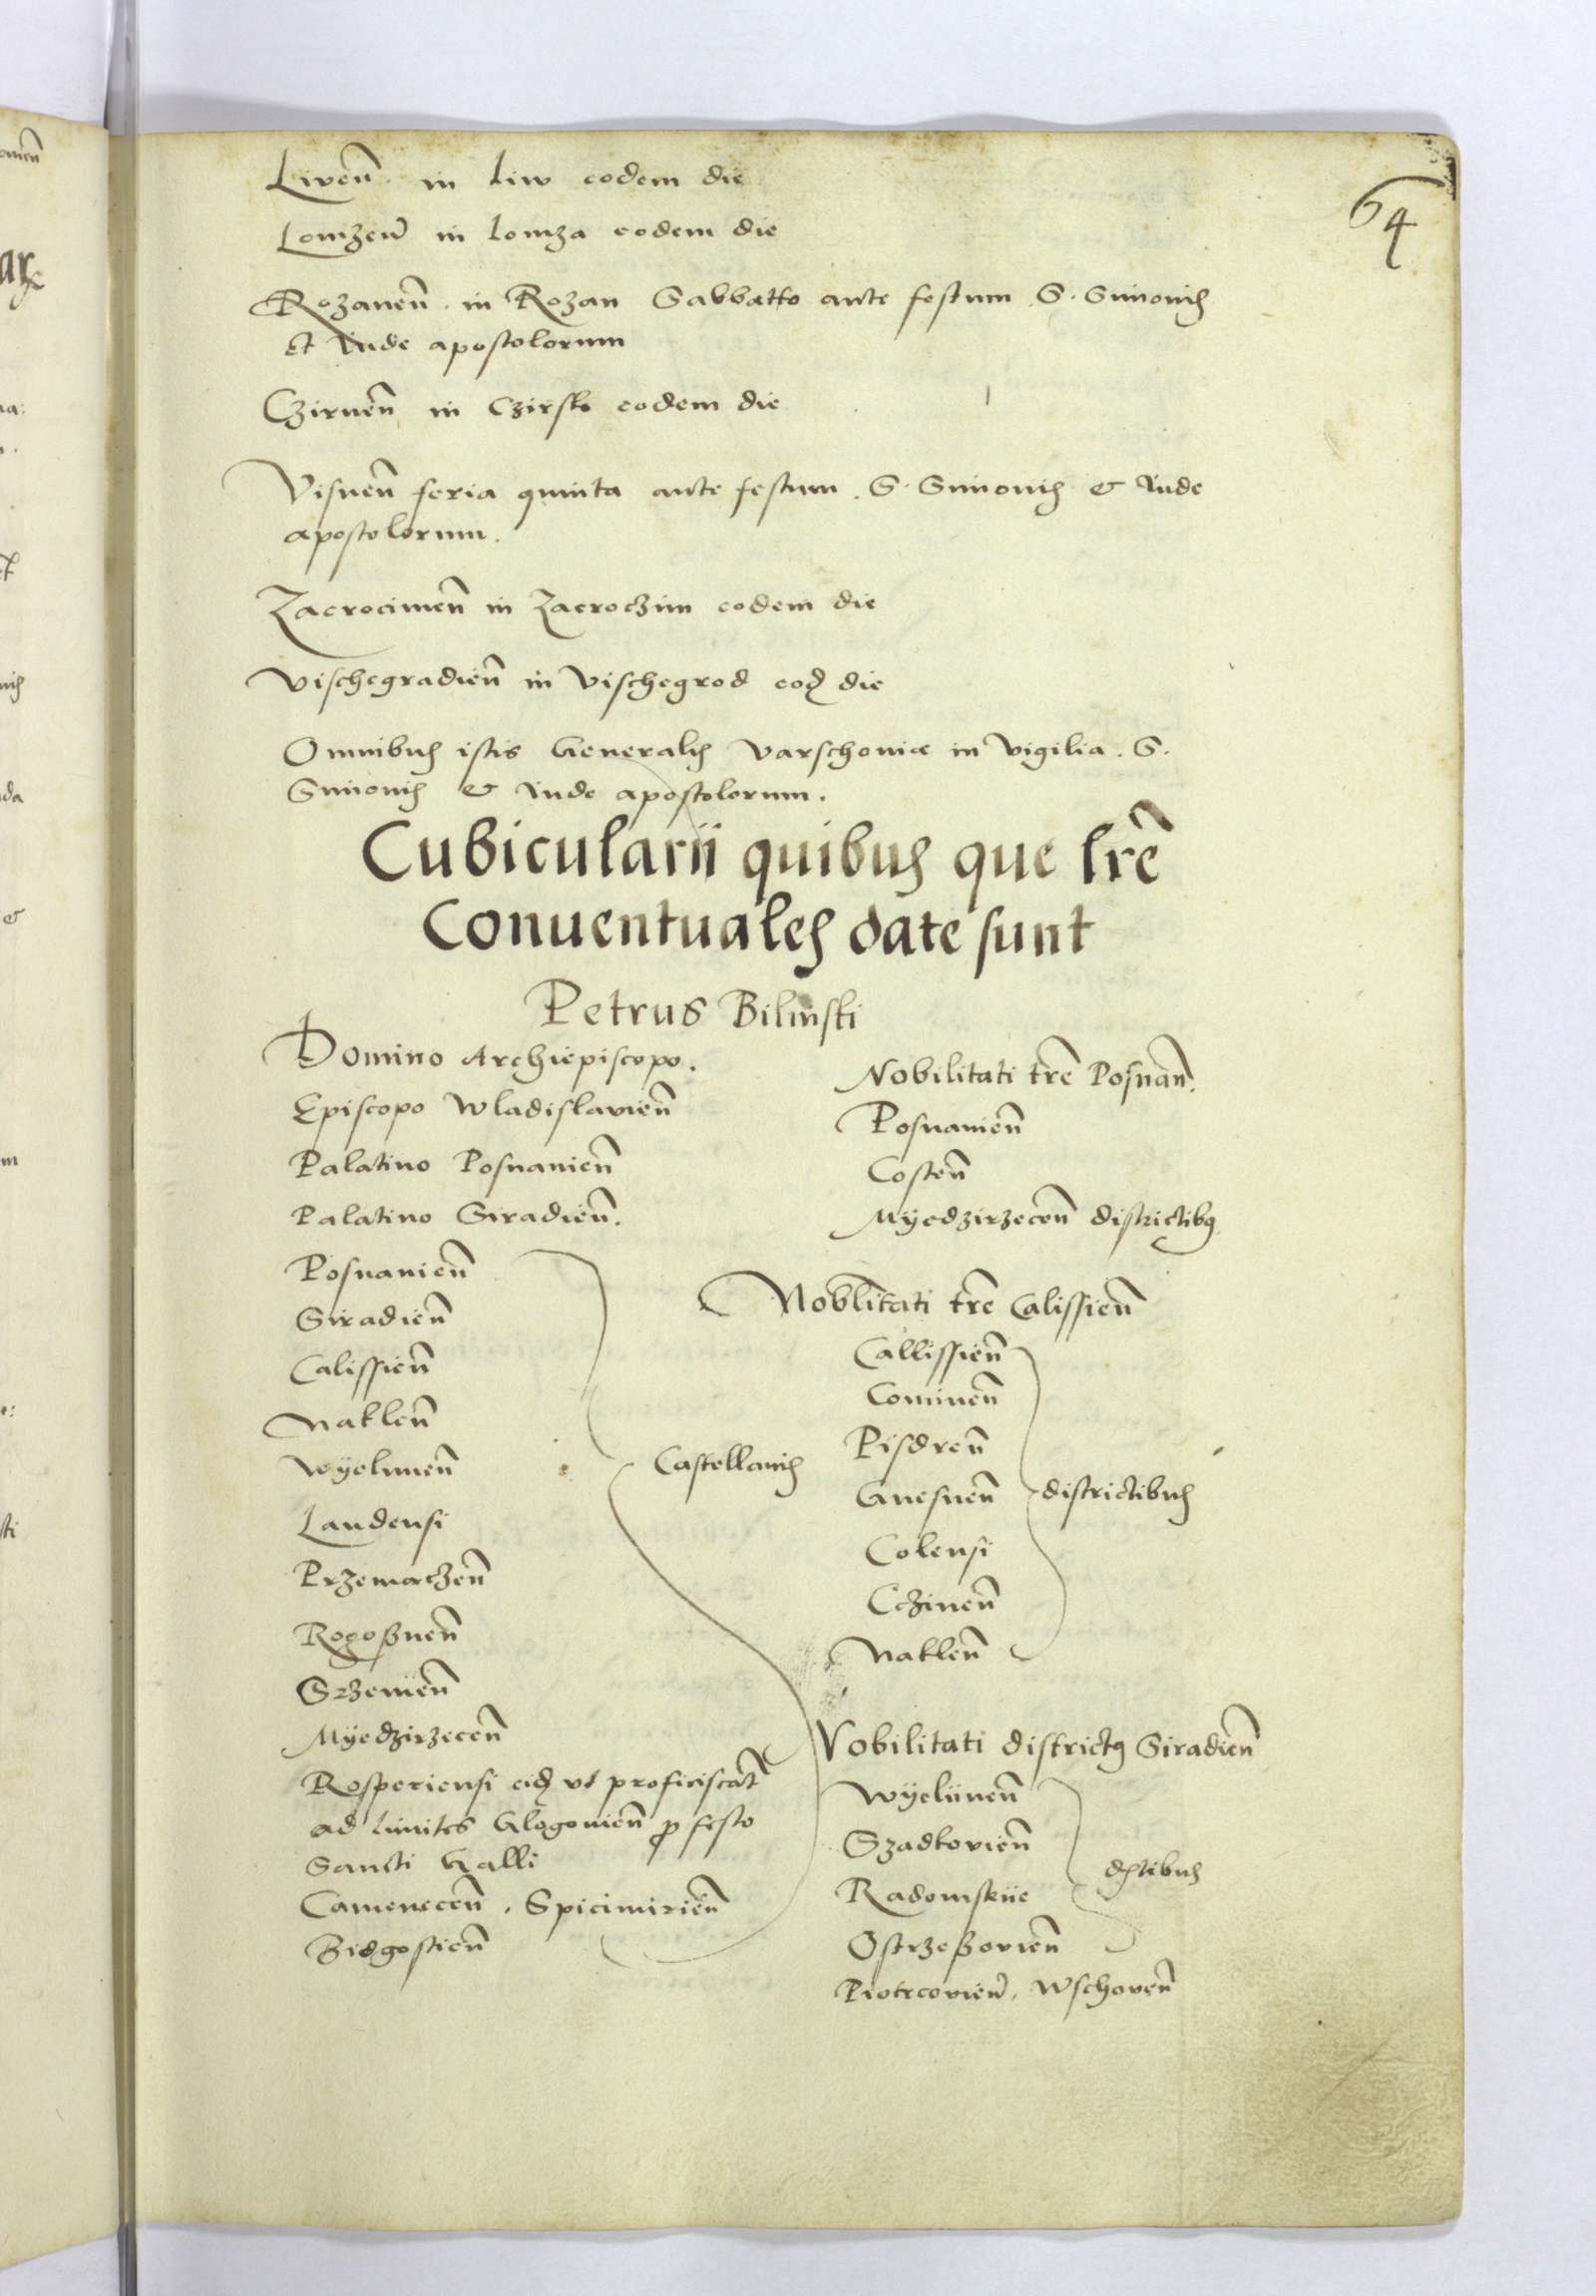 64
Liven̄ in Liw eodem die
Lomzen̄ in Lomza eodem die
Rozanen̄ in Rozan Sabbatto ante festum S. Simonis
Et Iude apostolorum
Czirnen̄ in Czirsko eodem die
Visnen̄ feria quinta ante festum S. Simonis & Iude
apostolorum.
Zacrocimen̄ in Zacroczim eodem die
Vischegradien̄ in Vischegrod eod die
Omnibus istis Generalis Varschoviæ in vigilia S.
Simonis & Iude apostolorum.
Cubicularii quibus que lr̄e
Conuentuales date sunt
Petrus Bilinski
Domino Archiepiscopo.
Episcopo Wladislavien̄
Palatino Posnanien̄
Palatino Siradien̄.
Posnanien̄
Siradien̄
Calissien̄
Naklen̄
Wyelunen̄
Landensi
Przemaczen̄
Rogoßnen̄
Srzemen̄
Myedzirzecen̄
Rosperiensi eid vt proficiscat̄
ad limites Glogovien̄ pro festo
Sancti Galli
Camenecen̄. Spicimirien̄
Bidgostien̄
Castellanis
Nobilitati tr̄e Posnan̄.
Posnanien̄
Costen̄
Myedzirzecen̄ districtibus
Noblitati tr̄e Calissien̄
Callissien̄
Coninen̄
Pisdren̄
Gnesnen̄
Colensi
Cczinen̄
Naklen̄
districtibus
Nobilitati districtus Siradien̄
Wyelünen̄
Szadkovien̄
Radomskie
Ostrzeßovien̄
Piotrcovien̄. Wschoven̄
dstibus